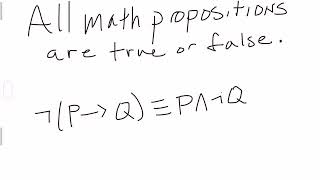 All math propositions
are true or false.
¬(P→Q)≡P∧¬Q